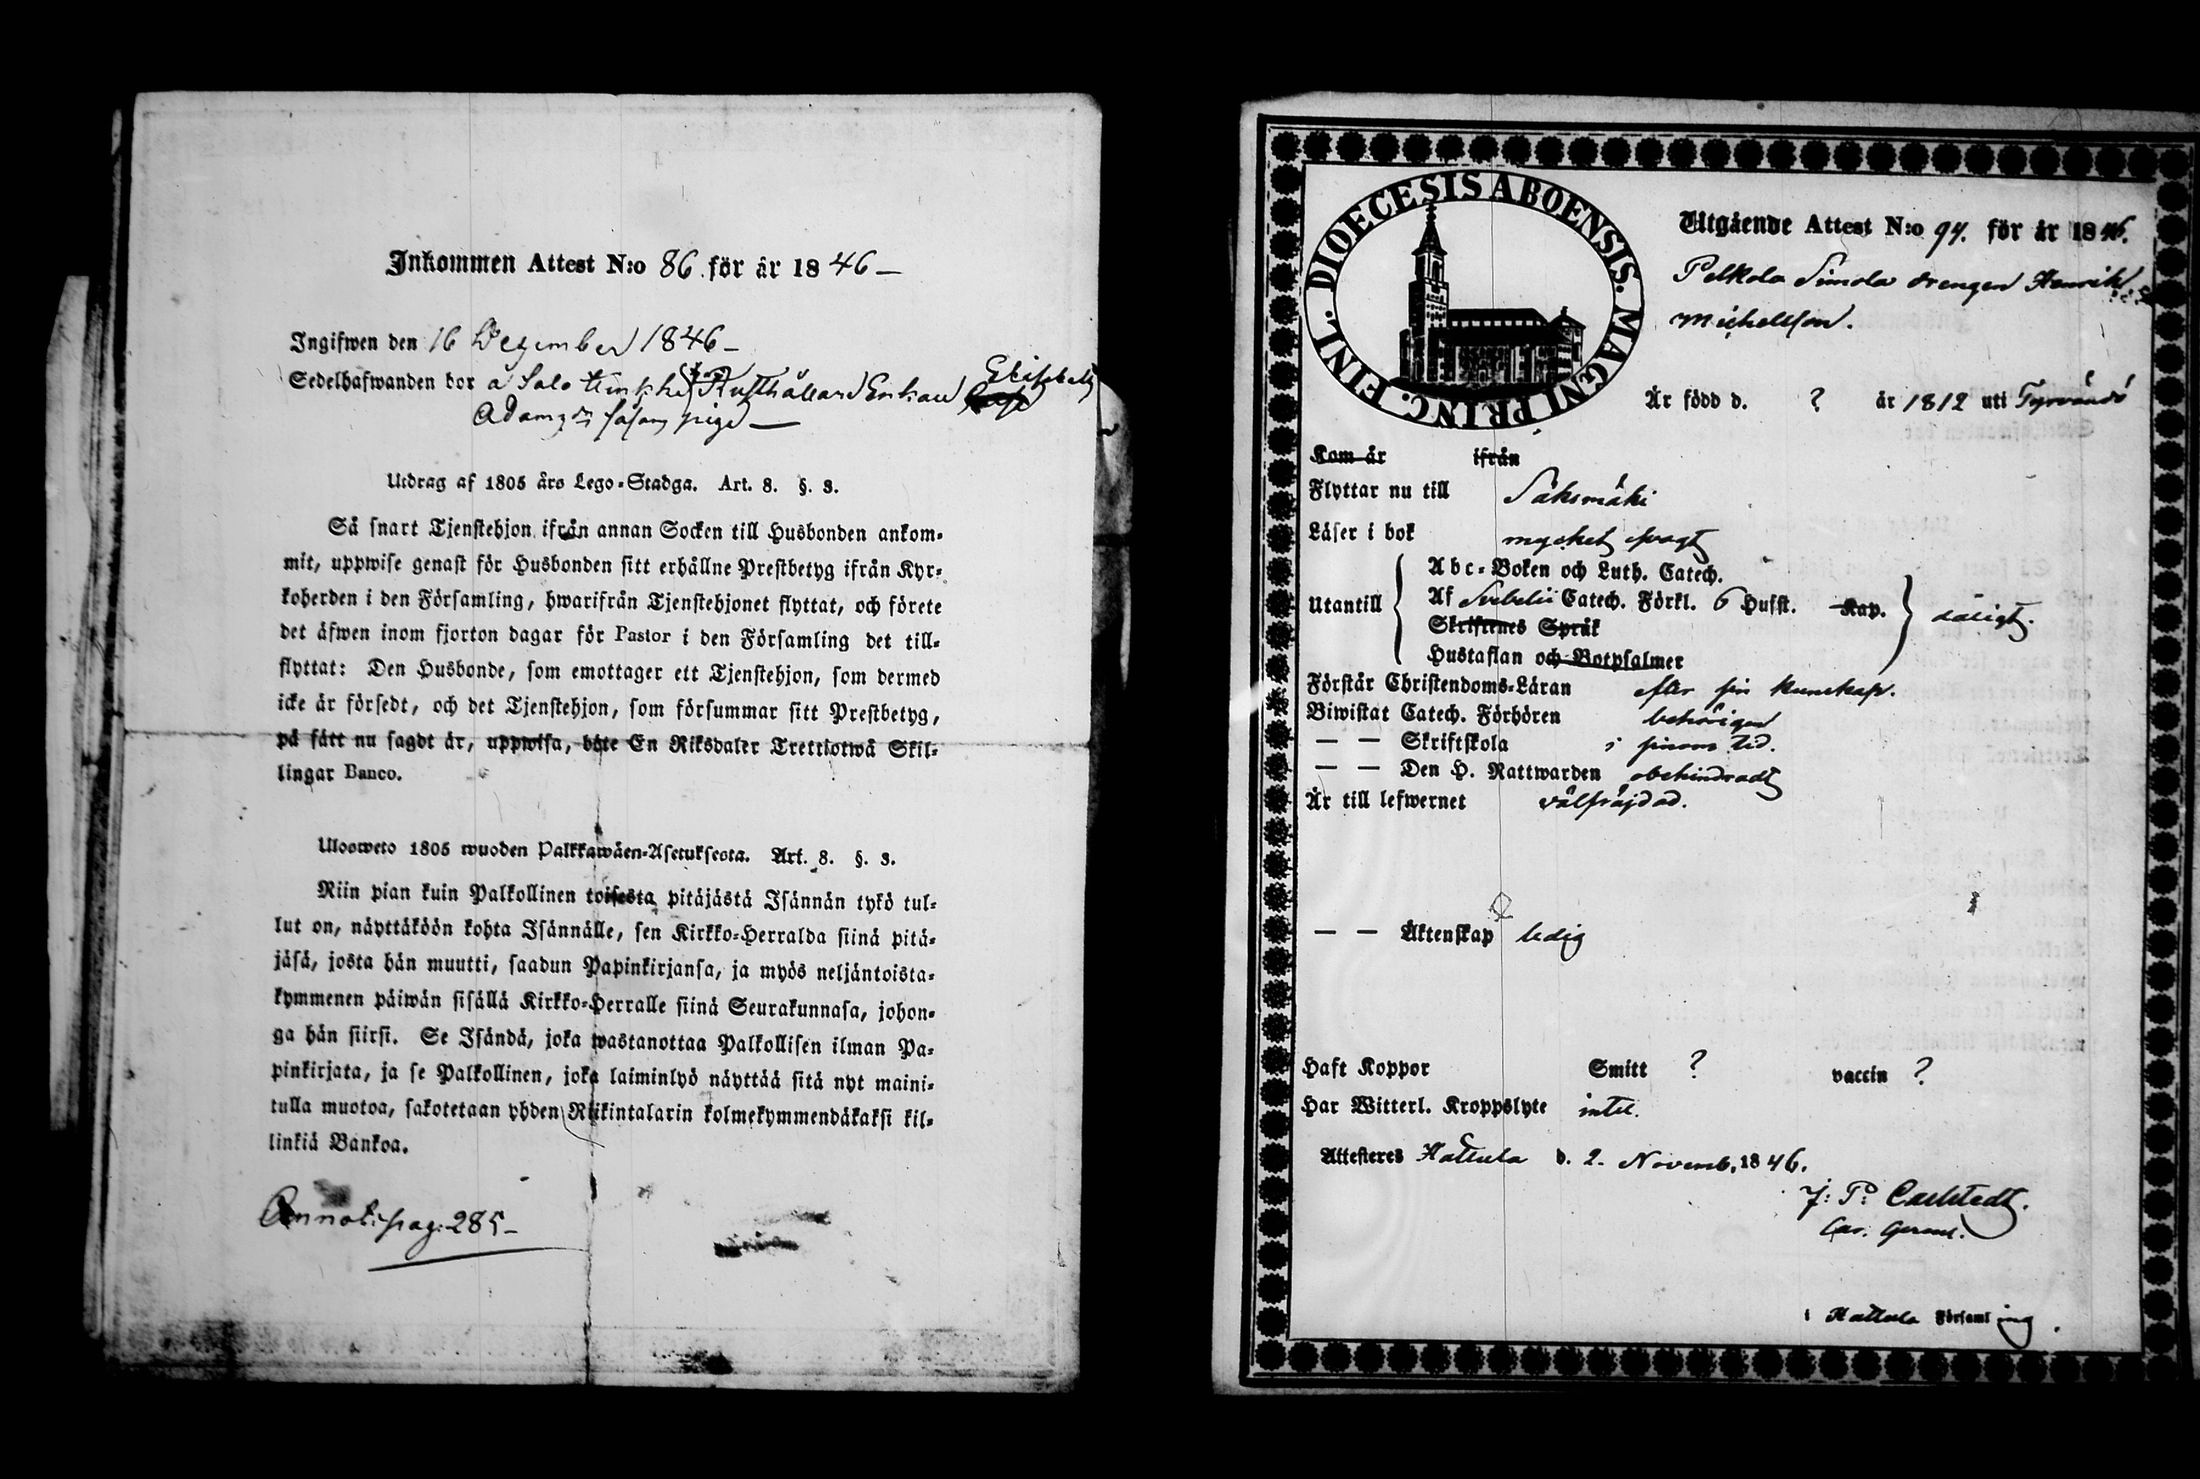 Inkommen Attest N:o 86 för år 1846 –
Ingifwen den 16 Dezember 1846 –
Sedelhafwanden bor å Salo Rusthållare Enkan Elisabeth
Adamsdr såsom piga –
Utdrag af 1805 års Lego-Stadga. Art. 8. §. 3.
Så snart Tjenstehjon ifrån annan Socken till Husbonden ankom-
mit, uppwise genast för Husbonden sitt erhållne Prestbetyg ifrån Kyr-
koherden i den Församling, hwarifrån Tjenstehjonet flyttat, och förete
det äfwen inom fjorton dagar för Pastor i den Församling det till-
flyttat: Den Husbonde, som emottager ett Tjenstehjon, som dermed
icke är försedt, och det Tjenstehjon, som försummar sitt Prestbetyg,
på sätt nu sagdt är, uppwisa, böte En Riksdaler Trettiotwå Skil-
lingar Banco.
Ulosweto 1805 wuoden Palkkawäen-Asetuksesta. Art. 8. §. 3.
Niin pian kuin Palkollinen toisesta pitäjästä Isännän tykö tul-
lut on, näyttäköön kohta Isännälle, sen Kirkko-Herralda siinä pitä-
jäsä, josta hän muutti, saadun Papinkirjansa, ja myös neljäntoista-
kymmenen päiwän sisällä Kirkko-Herralle siinä Seurakunnasa, johon-
ga hän siirsi. Se Isändä, joka wastanottaa Palkollisen ilman Pa-
pinkirjata, ja se Palkollinen, joka laiminlyö näyttää sitä nyt maini-
tulla muotoa, sakotetaan yhden Riikintalarin kolmekymmendäkaksi kil-
linkiä Bankoa.
Annot. pag. 285 –
DIOECESIS ABOENSIS. MAGNI PRINC. FINL.
Utgående Attest N:o 94. för år 1846.
Pelkola Simola drengen Henrik
Michelsson.
Är född d. ? år 1812 uti Tyrvändö
Kom år ifrån
Flyttar nu till Sääksmäki
Läser i bok mycket svagt
Abc-Boken och Luth. Catech.
Utantill Af Svebelii Catech. Förkl. 6 Hufst. Kap. dåligt.
Skriftenes Språk
Hustaflan och Botpsalmer
Förstår Christendoms-Läran efter sin kunskap.
Biwistat Catech. Förhören behörigen
— — Skriftskola i sinom tid.
— — Den H. Nattwarden obehindradt
Är till lefwernet välfräjdad.
— — Äktenskap ledig
Haft Koppor Smitt ? vaccin ?
Har Witterl. Kroppslyte intet.
Attesteres Hattula d. 2. Novemb. 1846.
J: P: Carlstedt.
i Hattula Församling.